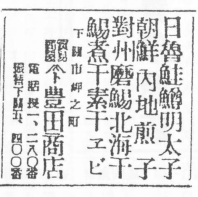 日魯鮭鱒明太子
朝鮮内地煎子
對州磨鯣北海干
鯣煮干素干ヱビ
下關市岬之町
豊田商店
電話長一、二八〇番
四〇〇番